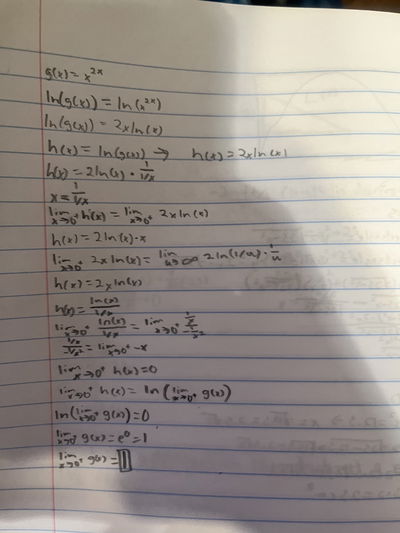 g(x) = x^2x
ln(g(x)) = ln(x^2x)
ln(g(x)) = 2x ln(x)
h(x) = ln(g(x)) → h(x) = 2x ln(x)
h(x) = 2 ln(x) · 1/1/x
x = 1/1/x
lim x→0+ h(x) = lim x→0+ 2x ln(x)
h(x) = 2 ln(x) · x
lim x→0+ 2x ln(x) = lim u→∞ 2 ln(1/u) · 1/u
h(x) = 2x ln(x)
h(x) = ln(x)/1/x
lim x→0+ ln(x)/1/x = lim x→0+ 1/x/-1/x²
1/x/-1/x² = lim x→0+ -x
lim x→0+ h(x) = 0
lim x→0+ h(x) = ln(lim x→0+ g(x))
ln(lim x→0+ g(x)) = 0
lim x→0+ g(x) = e^0 = 1
lim x→0+ g(x) = 1